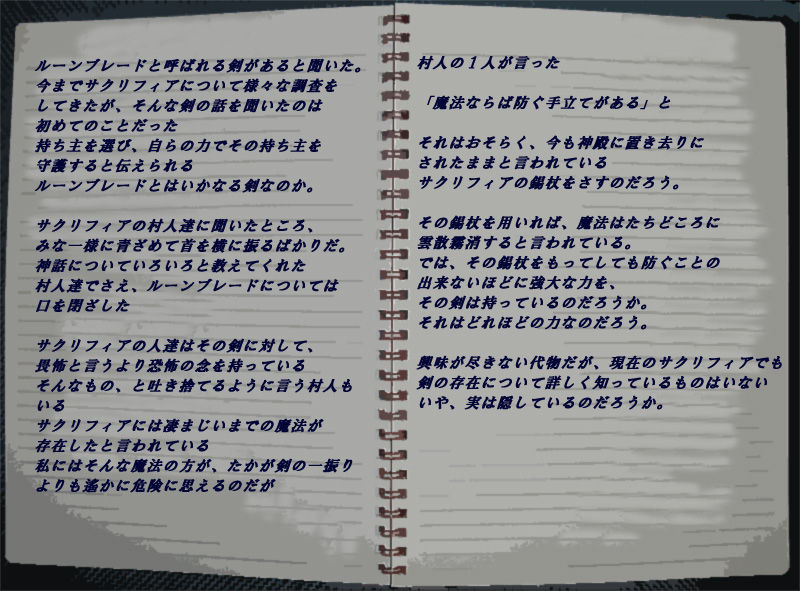 ルーンブレードと呼ばれる剣があると聞いた。
今までサクリフィアについて様々な調査を
してきたが、そんな剣の話を聞いたのは
初めてのことだった
持ち主を選び、自らの力でその持ち主を
守護すると伝えられる
ルーンブレードとはいかなる剣なのか。
サクリフィアの村人達に聞いたところ、
みな一様に青ざめて首を横に振るばかりだ。
神話についていろいろと教えてくれた
村人達でさえ、ルーンブレードについては
口を閉ざした
サクリフィアの人達はその剣に対して、
畏怖と言うより恐怖の念を持っている
そんなもの、と吐き捨てるように言う村人も
いる
サクリフィアには凄まじいまでの魔法が
存在したと言われている
私にはそんな魔法の方が、たかが剣の一振り
よりも遙かに危険に思えるのだが
村人の１人が言った
「魔法ならば防ぐ手立てがある」と
それはおそらく、今も神殿に置き去りに
されたままと言われている
サクリフィアの錫杖をさすのだろう。
その錫杖を用いれば、魔法はたちどころに
雲散霧消すると言われている。
では、その錫杖をもってしても防ぐことの
出来ないほどに強大な力を、
その剣は持っているのだろうか。
それはどれほどの力なのだろう。
興味が尽きない代物だが、現在のサクリフィアでも
剣の存在について詳しく知っているものはいない
いや、実は隠しているのだろうか。